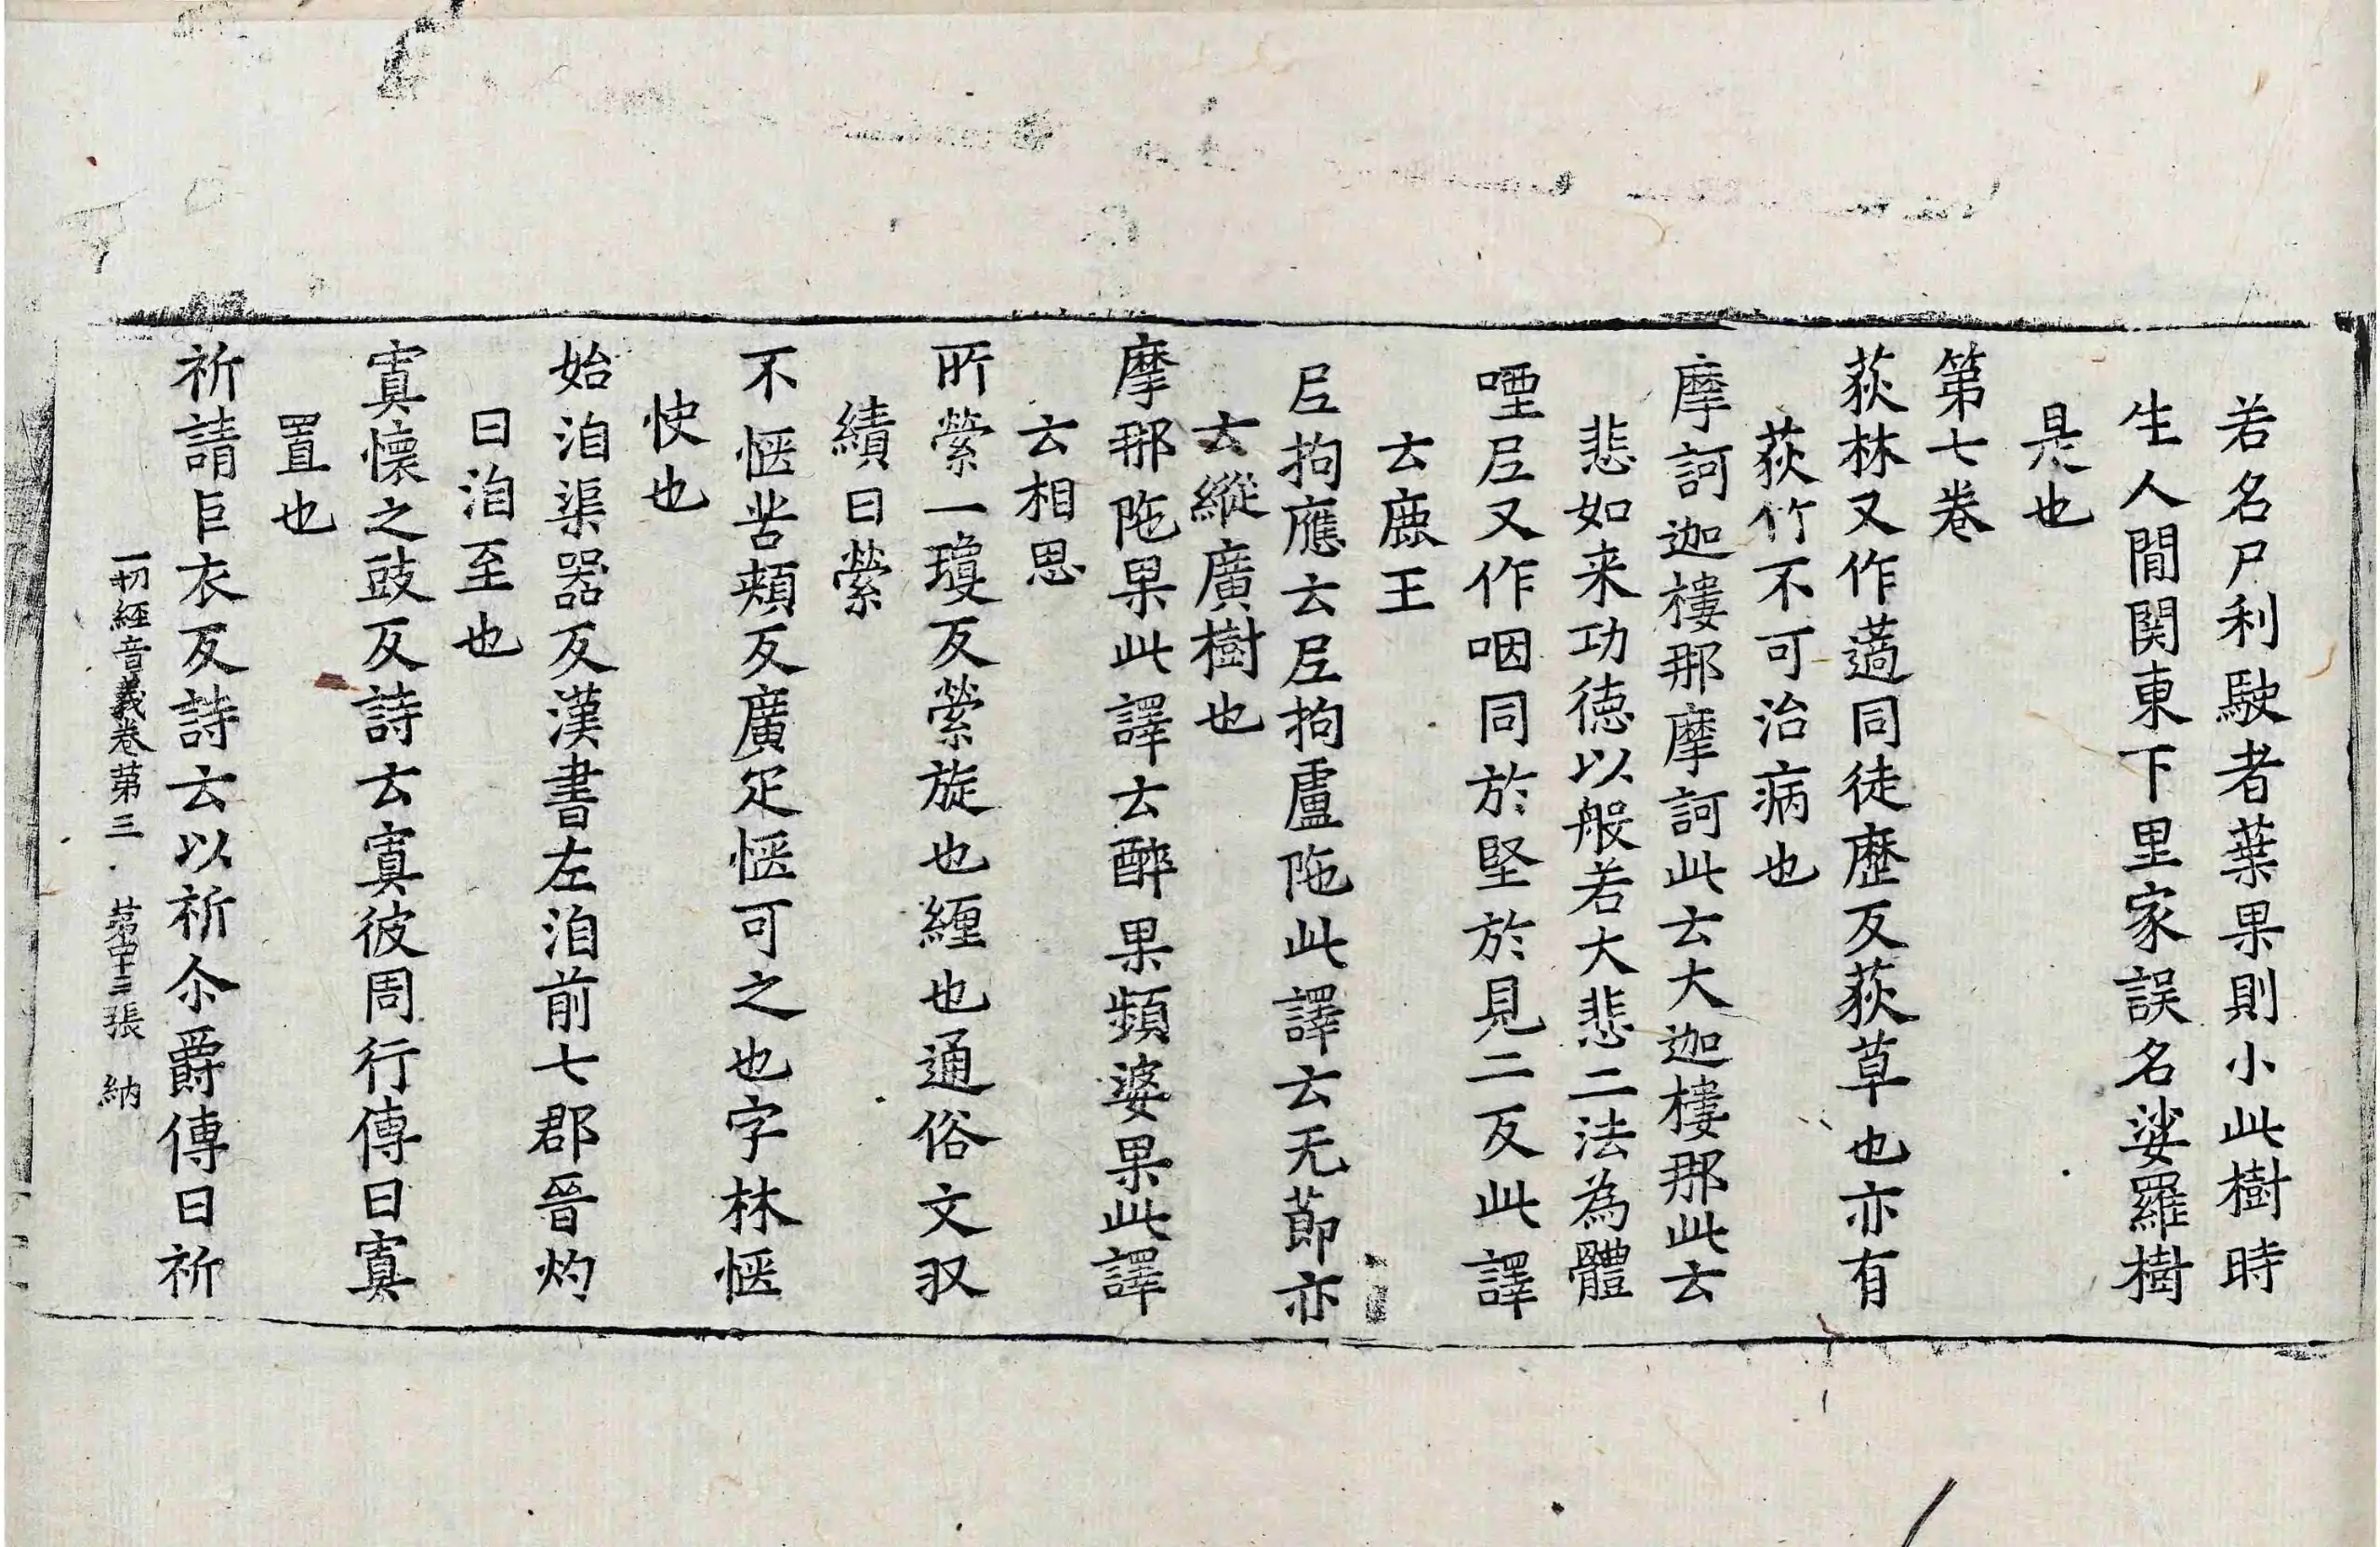 若名尸利駛者葉果則小此樹時
生人閒関東下里家誤名娑羅樹
是也
第七卷
荻林又作藡同徒歷反荻草也亦有
荻竹不可治病也
摩訶迦樓那摩訶此云大迦樓那此云
悲如来功德以般若大悲二法為體
堙𡰱又作咽同於堅於見二反此譯
云鹿王
𡰱拘應云𡰱拘盧陁此譯云无莭亦
云縱廣樹也
摩那陁果此譯云醉果頻婆果此譯
云相思
所縈一瓊反縈旋也纏也通俗文収
績曰縈
不愜苦頰反廣疋愜可之也字林愜
快也
始洎渠器反漢書左洎前七郡晉灼
曰洎至也
寘懷之豉反詩云寘彼周行傳曰寘
置也
祈請巨衣反詩云以祈尒爵傳曰祈
一切經音義卷第三 第 張 納